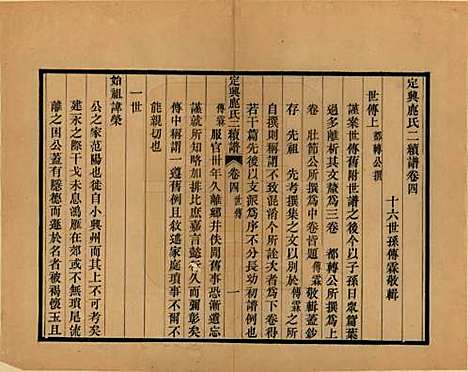 定興鹿氏二續譜卷四
十六世孫傳霖敬輯
世傳上 都轉公撰
謹案世傳舊附世譜之後今以子孫日衆篇葉
過多離析其文釐爲三卷 都轉公所撰爲上
卷 壯節公所撰爲中卷皆題 傳霖敬輯蓋鈔
存 先祖 先考撰集之文以 傳霖 之所
自撰則稱謂不致混淆今所諠大者爲下卷得
若干篇先後以支派爲序不分長幼初謂例也
傳霖 服官卅年久離鄉井佚聞舊事恐漸遺忘
謹就所知略加排比庶嘉言懿行久而彌彰矣
傳中稱謂一遵舊例且以敘述家庭瑣事不
能親切也
定興鹿氏二續譜 卷四 世傳 一
一世
始祖諱榮
公之家范陽也徙自小興州而其上不可考矣
建永之際干戈未息鴻雁在郊或不無瑣尾流
離之困公蓋有隱德而遯於名者被褐懷玉且